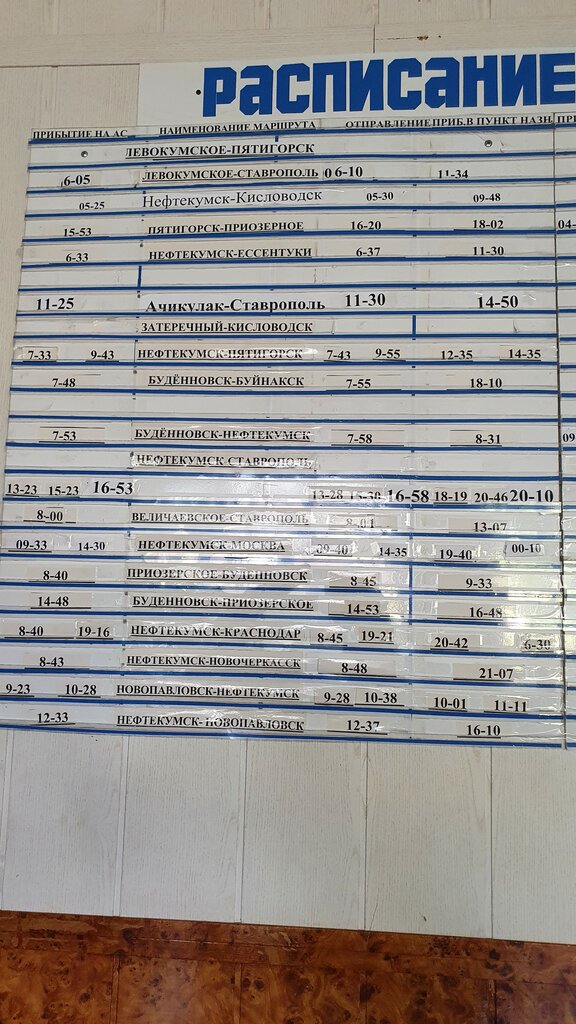 РАСПИСАНИЕ
ПРИБЫТИЕ НА АС НАИМЕНОВАНИЕ МАРШРУТА ОТПРАВЛЕНИЕ ПРИБ.В ПУНКТ НАЗН
ЛЕВОКУМСКОЕ-ПЯТИГОРСК
6-05 ЛЕВОКУМСКОЕ-СТАВРОПОЛЬ 06-10 11-34
05-25 Нефтекумск-Кисловодск 05-30 09-48
15-53 ПЯТИГОРСК-ПРИОЗЕРНОЕ 16-20 18-02
6-33 НЕФТЕКУМСК-ЕССЕНТУКИ 6-37 11-30
11-25 Ачикулак-Ставрополь 11-30 14-50
ЗАТЕРЕЧНЫЙ-КИСЛОВОДСК
7-33 9-43 НЕФТЕКУМСК-ПЯТИГОРСК 7-43 9-55 12-35 14-35
7-48 БУДЁННОВСК-БУЙНАКСК 7-55 18-10
7-53 БУДЁННОВСК-НЕФТЕКУМСК 7-58 8-31
НЕФТЕКУМСК-СТАВРОПОЛЬ
13-23 15-23 16-53 13-28 15-30 16-58 18-19 20-46 20-10
8-00 ВЕЛИЧАЕВСКОЕ-СТАВРОПОЛЬ 8-01 13-07
09-33 14-30 НЕФТЕКУМСК-МОСКВА 09-40 14-35 19-40 00-10
8-40 ПРИОЗЕРСКОЕ-БУДЕННОВСК 8-45 9-33
14-48 БУДЕННОВСК-ПРИОЗЕРСКОЕ 14-53 16-48
8-40 19-16 НЕФТЕКУМСК-КРАСНОДАР 8-45 19-21 20-42 6-30
8-43 НЕФТЕКУМСК-НОВОЧЕРКАССК 8-48 21-07
9-23 10-28 НОВОПАВЛОВСК-НЕФТЕКУМСК 9-28 10-38 10-01 11-11
12-33 НЕФТЕКУМСК- НОВОПАВЛОВСК 12-37 16-10